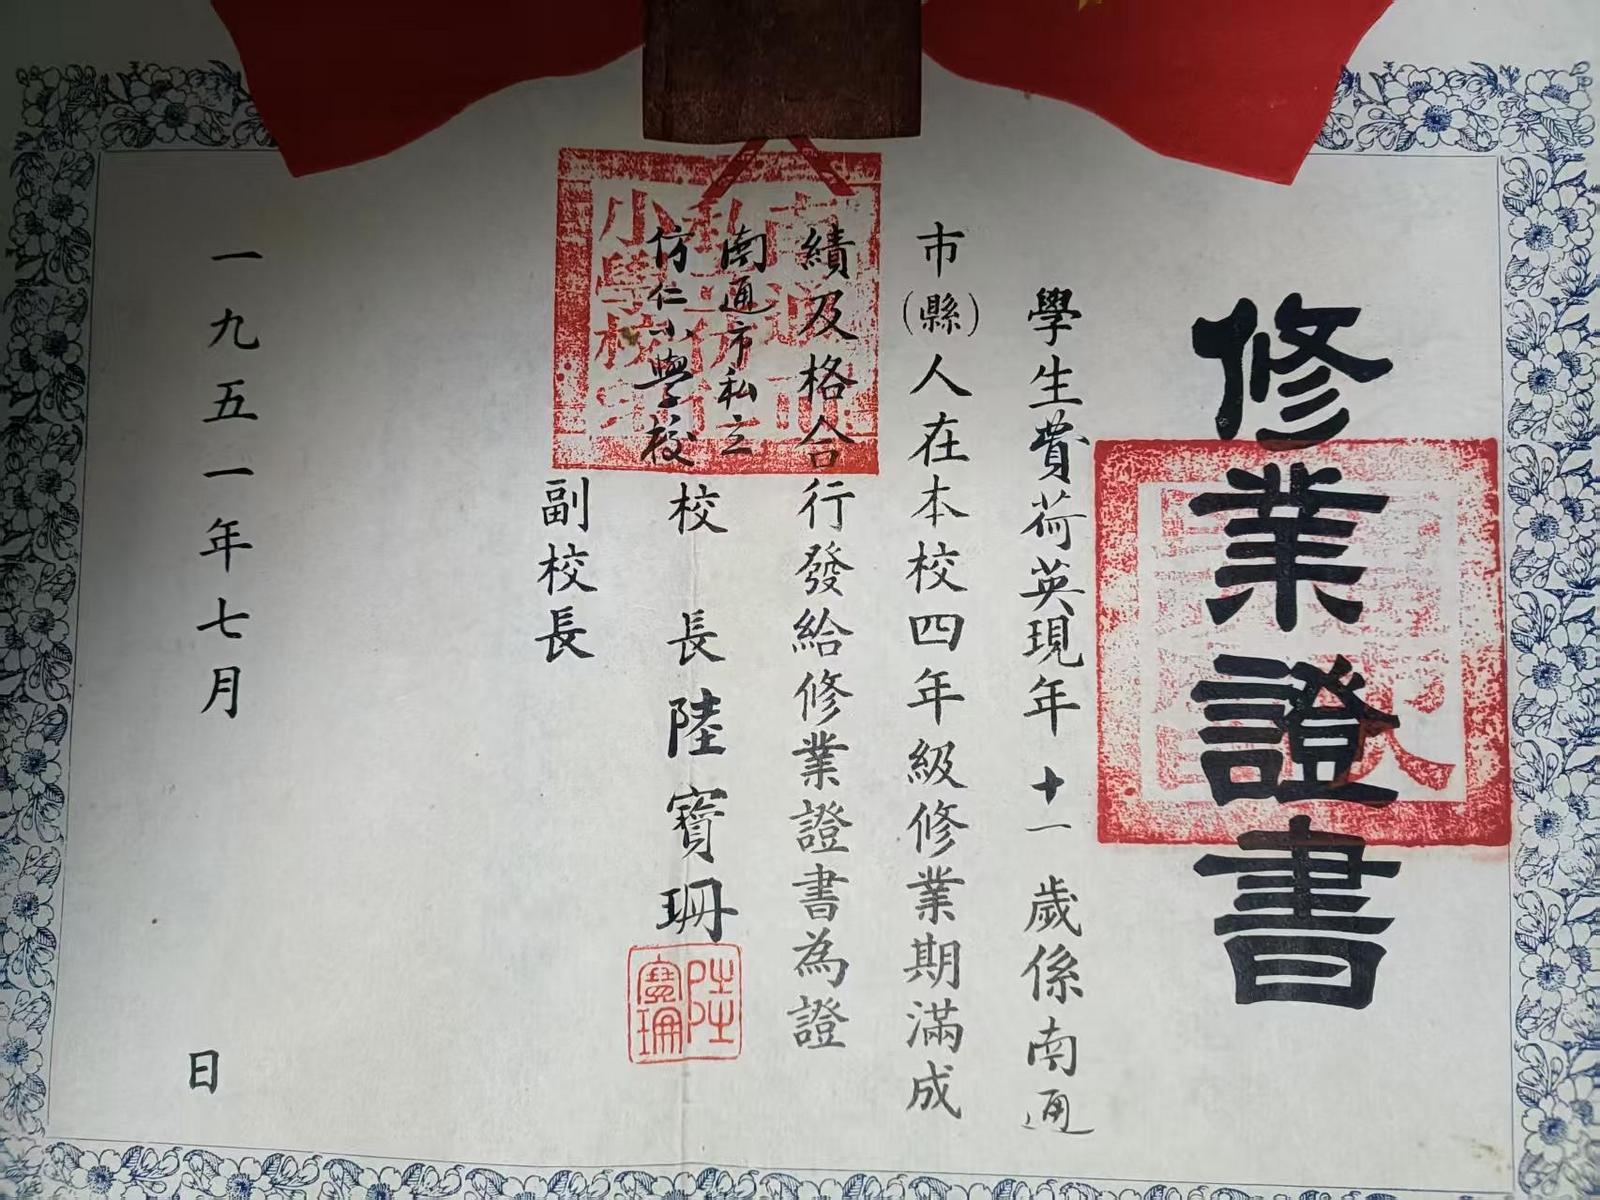 修業證書
學生費荷英現年十一歲係南通
市(縣)人在本校四年級修業期滿成
績及格合行發給修業證書為證
南通市私立
仿仁小學校
校長陸寶珊
副校長
一九五一年七月 日
陸寶珊